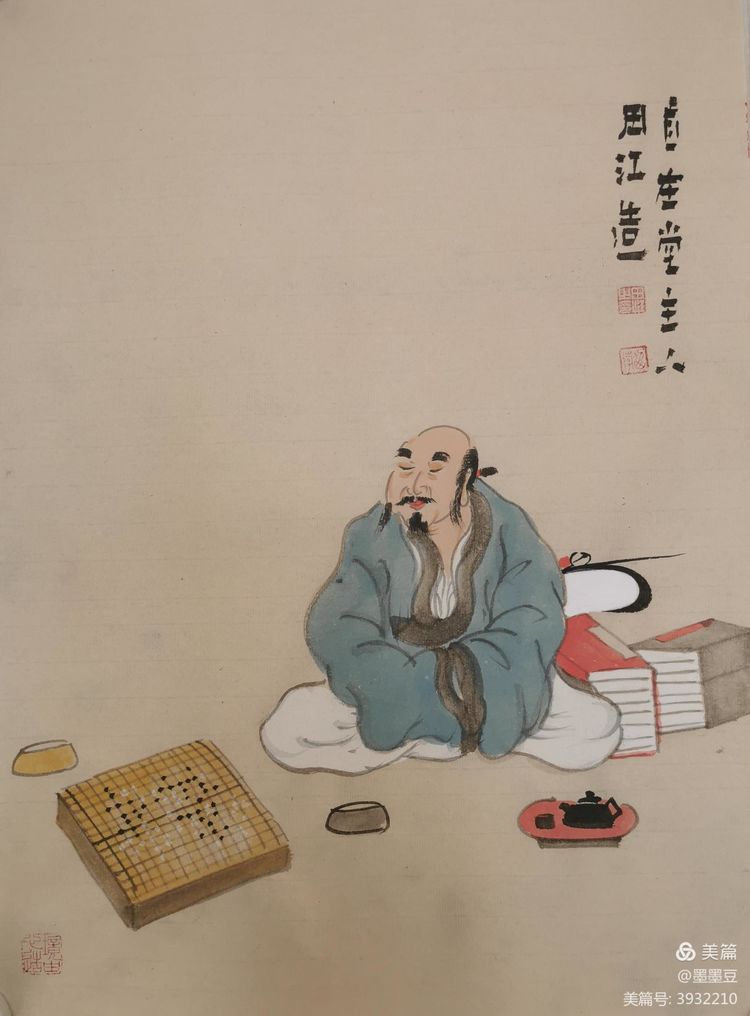 自在堂主人
周江造
美篇
@墨墨豆
美篇号: 3932210